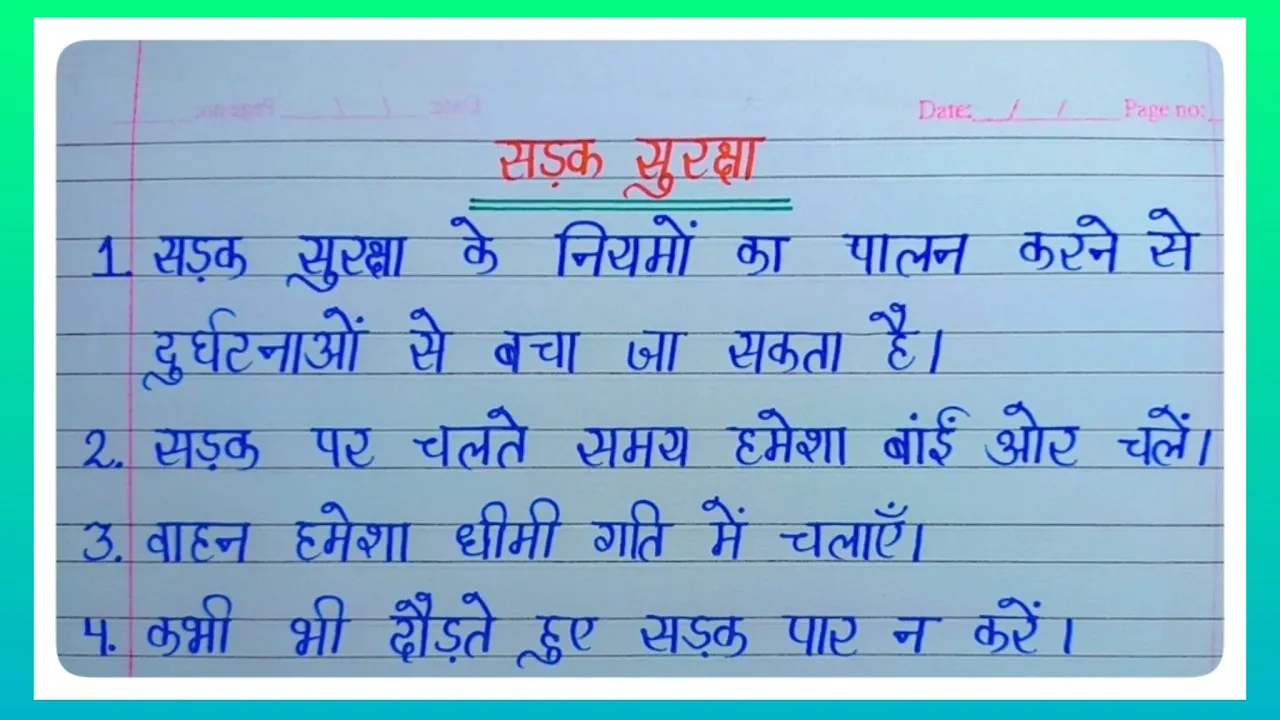 Date: / / Page no:
सड़क सुरक्षा
1. सड़क सुरक्षा के नियमों का पालन करने से
दुर्घटनाओं से बचा जा सकता है।
2. सड़क पर चलते समय हमेशा बांईं ओर चलें।
3. वाहन हमेशा धीमी गति में चलाएँ।
4. कभी भी दौड़ते हुए सड़क पार न करें।